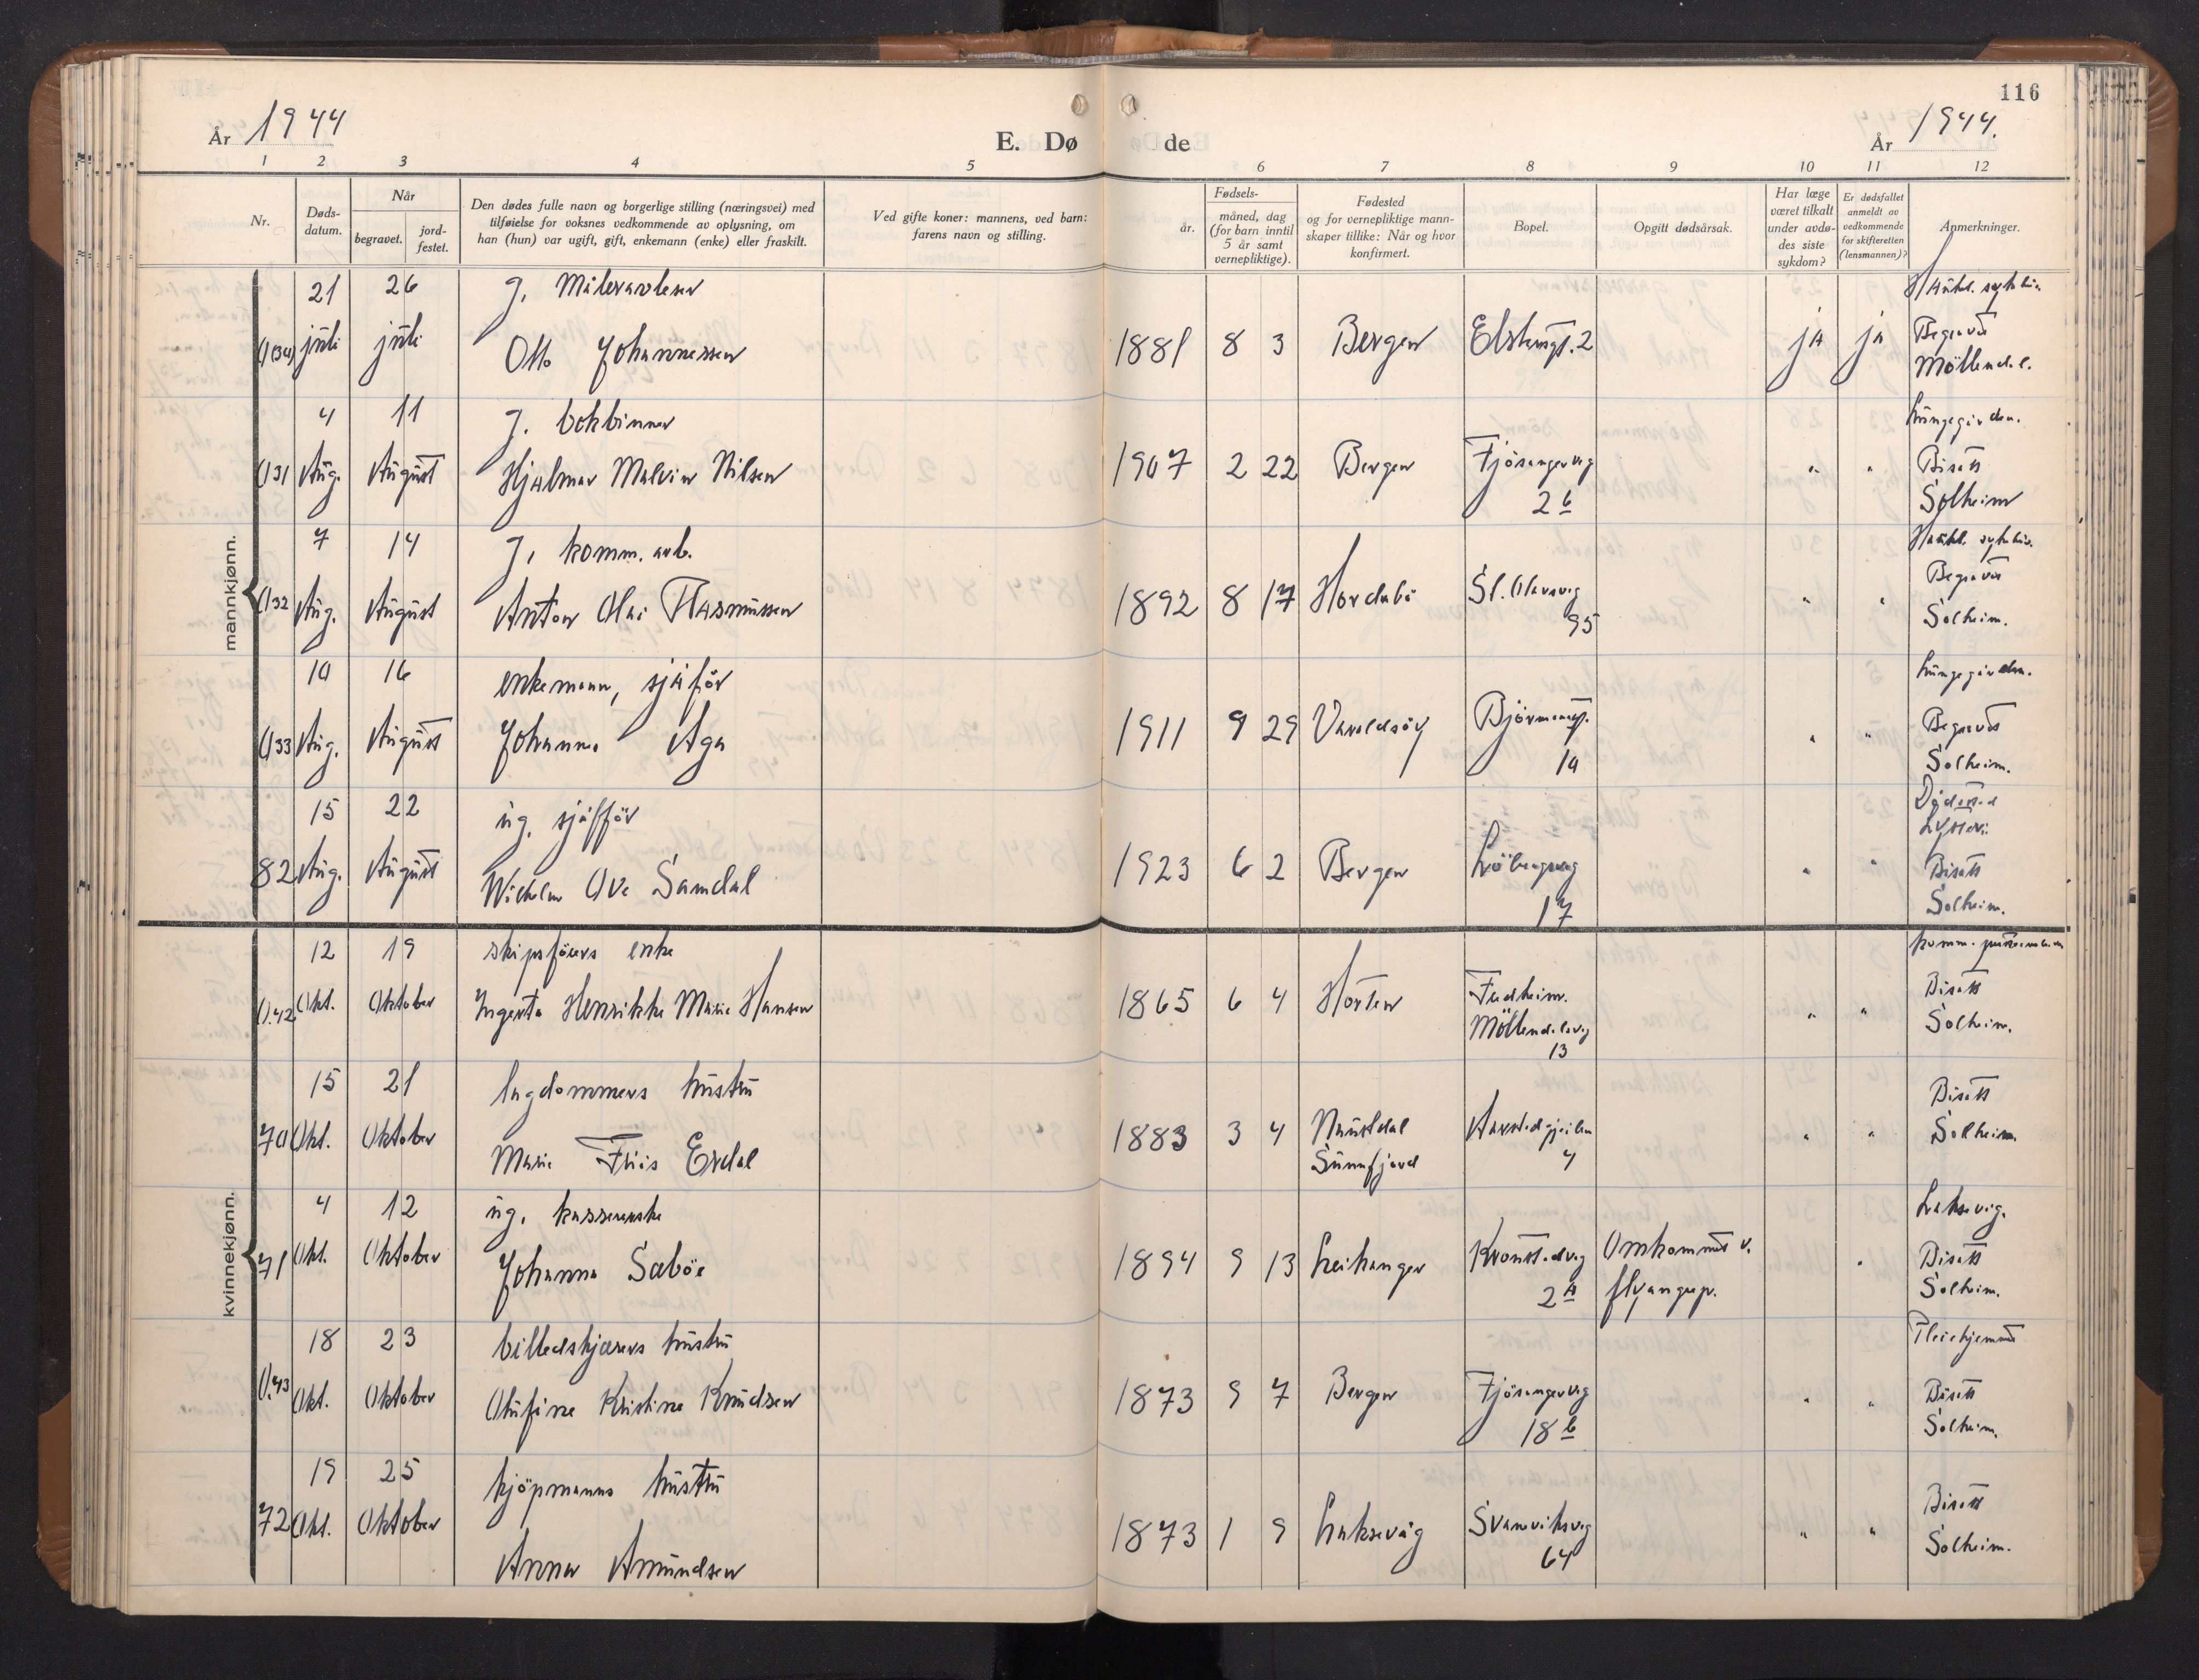 116
År 1944
E. Dø de
År 1944.
1 2 3 4 5 6 7 8 9 10 11 12
Nr.
Døds-
datum.
Når
begravet.
jord-
festet.
Den dødes fulle navn og borgerlige stilling (næringsvei) med
tilføielse for voksnes vedkommende av oplysning, om
han (hun) var ugift, gift, enkemann (enke) eller fraskilt.
Ved gifte koner: mannens, ved barn:
farens navn og stilling.
Fødsels-
år.
måned, dag
(for barn inntil
5 år samt
vernepliktige).
Fødested
og for vernepliktige mann-
skaper tillike: Når og hvor
konfirmert.
Bopel.
Opgitt dødsårsak.
Har læge
været tilkalt
under avdø-
des siste
sykdom?
Er dødsfallet
anmeldt av
vedkommende
for skifteretten
(lensmannen)?
Anmerkninger.
mannkjønn.
21 26 g. Malerarbeser Haukl. sykehus.
juli juli Otto Johannessen 1881 8 3 Bergen ja ja Begravet
Möllend.l.
4 11 g. bokbinner Lungegården.
031 Aug. August Hjalmar Malvin Nilsen 1907 2 22 Bergen Fjösangerveg " " Bisatt
2 b Solheim
7 14 g. komm. arb. Haukl. sykehus.
032 Aug. August Anton Olai Rasmussen 1892 8 17 Hordabö St. Olavsveg " " Begravet
95 Solheim.
10 16 enkemann, sjåför Lungegården.
033 Aug. August Johannes Aga 1911 9 29 Varaldsöy " " Begravet
10 Solheim.
15 22 ug. sjåfför Dödssted
82 Aug. August Wilhelm Ove Samdal 1923 6 2 Bergen " " Bisatt
17 Solheim.
kvinnekjønn.
12 19 skipsförers enke komm.
0.42 Okt. Oktober Ingerta Henrikke Marie Hansen 1865 6 4 Horten Fredheim. " " Bisatt
Möllendalsveg Solheim.
13
15 21 lugdommers hustru Bisatt
70 Okt. Oktober Marie Friis Erdal 1883 3 4 Naustdal " " Solheim.
Sunnfjord 4
4 12 ug. kassererske Laksevåg.
71 Okt. Oktober Johanna Sæböe 1894 9 13 Leikanger Kronstadveg Omkommet v. " Bisatt
2 A flyangrep. Solheim.
18 23 billedskjærers hustru Pleiehjemmet
0.43 Okt. Oktober Olufine Kristine Knudsen 1873 9 7 Bergen Fjösangerveg " " Bisatt
18 b Solheim.
19 25 kjöpmanns hustru Bisatt
72 Okt. Oktober Anna Amundsen 1873 1 9 Laksevåg Svanviksveg " " Solheim.
64